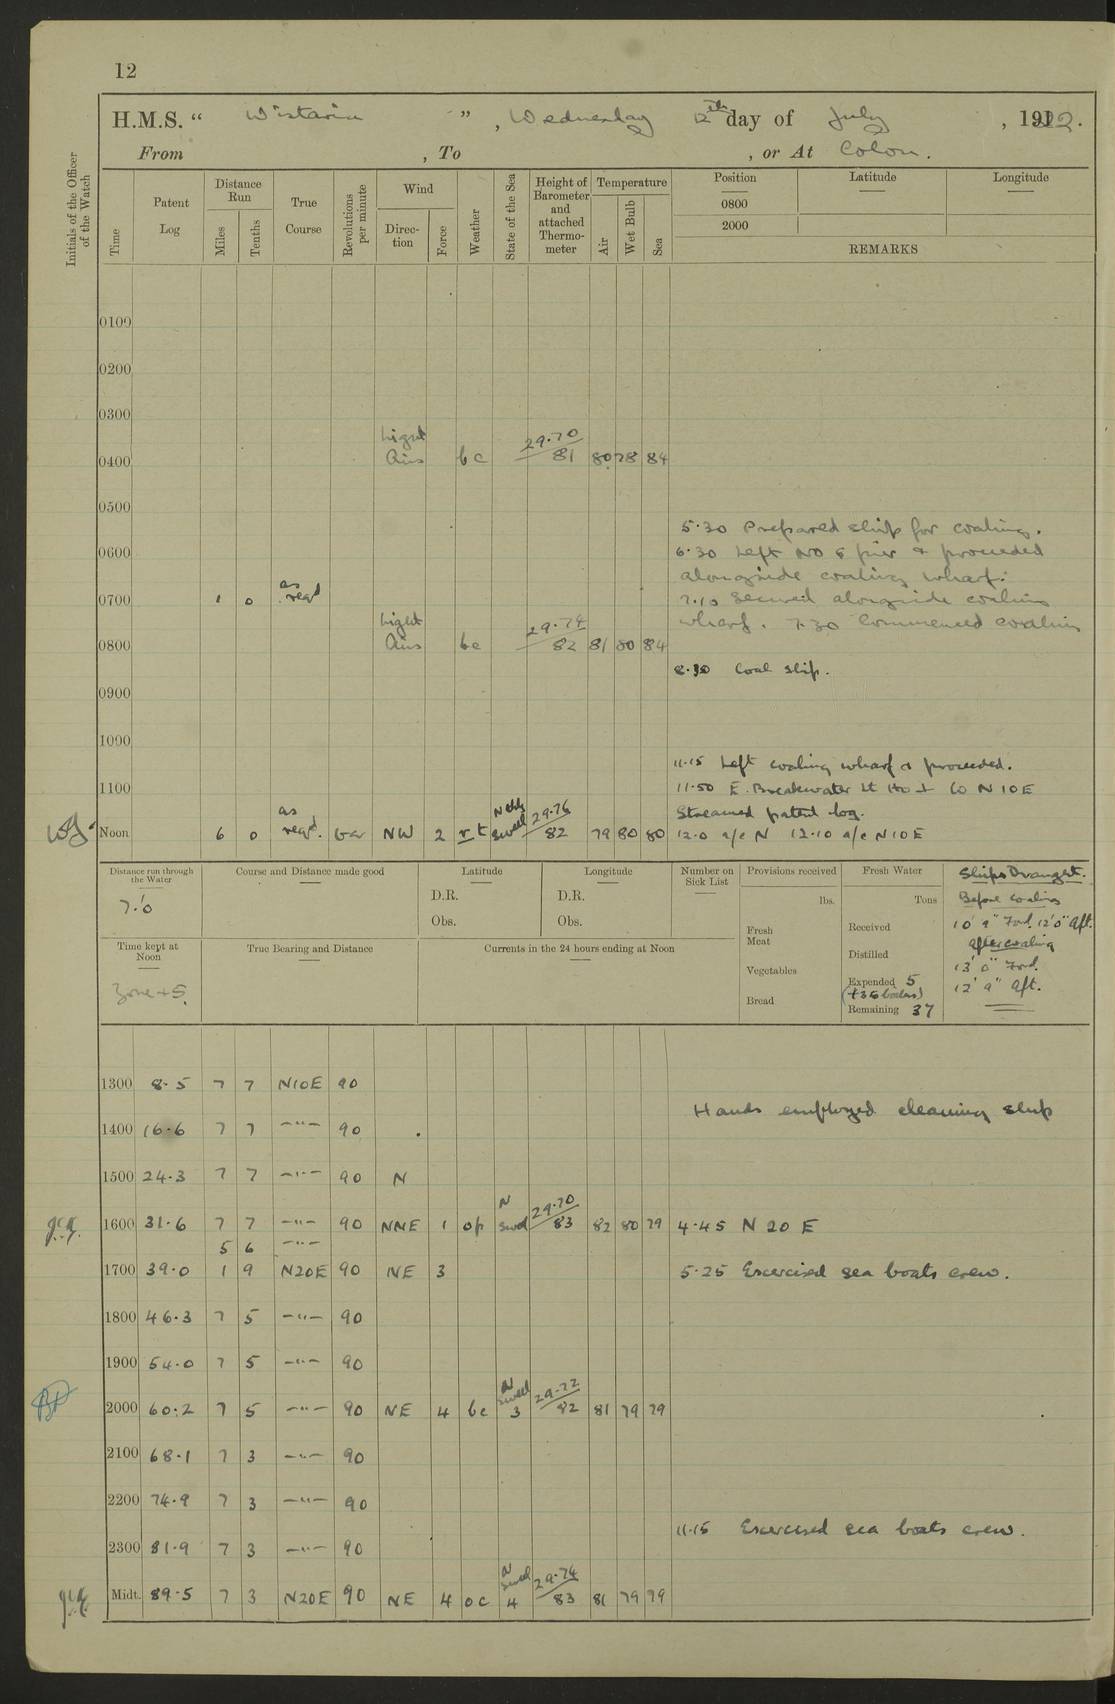 12
H.M.S. " Wistaria " , Wednesday 12th day of July , 1922.
From , To , or At Colon.
Initials of the Officer of the Watch
Time
Patent Log
Distance Run
Miles Tenths
True Course
Revolutions per minute
Wind
Direction Force
Weather
State of the Sea
Height of Barometer and attached Thermometer
Temperature
Air Wet Bulb Sea
Position Latitude Longitude
0800
2000
REMARKS
0100
0200
0300
0400 Light Airs bc 29.70 81 80 78 84
0500
5.30 Prepared ship for coaling.
0600 6.30 Left No 6 pier & proceeded
alongside coaling wharf.
0700 1 0 as reqd 7.10 Secured alongside coaling
wharf. 7.30 Commenced coaling
0800 Light Airs bc 29.74 82 81 80 84
8.30 Coal ship.
0900
1000
11.15 Left coaling wharf & proceeded.
1100 11.50 E. Breakwater Lt Ho ⊥ Co N 10 E
Streamed patent log.
Noon 6 0 as reqd. var NW 2 r t Nthly swell 29.76 82 79 80 80 12.0 a/c N 12.10 a/c N10E
Distance run through the Water
7.'0
Course and Distance made good
Latitude
D.R.
Obs.
Longitude
D.R.
Obs.
Number on Sick List
Provisions received
lbs.
Fresh Meat
Vegetables
Bread
Fresh Water
Tons
Received
Distilled
Expended 5
(+35 boilers)
Remaining 37
Ships Draught.
Before coaling
10' 9" Ford. 12' 0" Aft.
After coaling
13' 0" Ford.
12' 9" Aft.
Time kept at Noon
Zone +5
True Bearing and Distance
Currents in the 24 hours ending at Noon
1300 8.5 7 7 N10E 90
Hands employed cleaning ship
1400 16.6 7 7 —"— 90
1500 24.3 7 7 —"— 90 N
1600 31.6 7 7 —"— 90 NNE 1 op N swell 29.70 83 82 80 79 4.45 N 20 E
5 6 —"—
1700 39.0 1 9 N20E 90 NE 3 5.25 Exercised sea boats crew.
1800 46.3 7 5 —"— 90
1900 54.0 7 5 —"— 90
2000 60.2 7 5 —"— 90 NE 4 bc N swell 3 29.72 82 81 79 79
2100 68.1 7 3 —"— 90
2200 74.9 7 3 —"— 90
11.15 Exercised sea boats crew.
2300 81.9 7 3 —"— 90
Midt. 89.5 7 3 N20E 90 NE 4 oc N swell 4 29.74 83 81 79 79